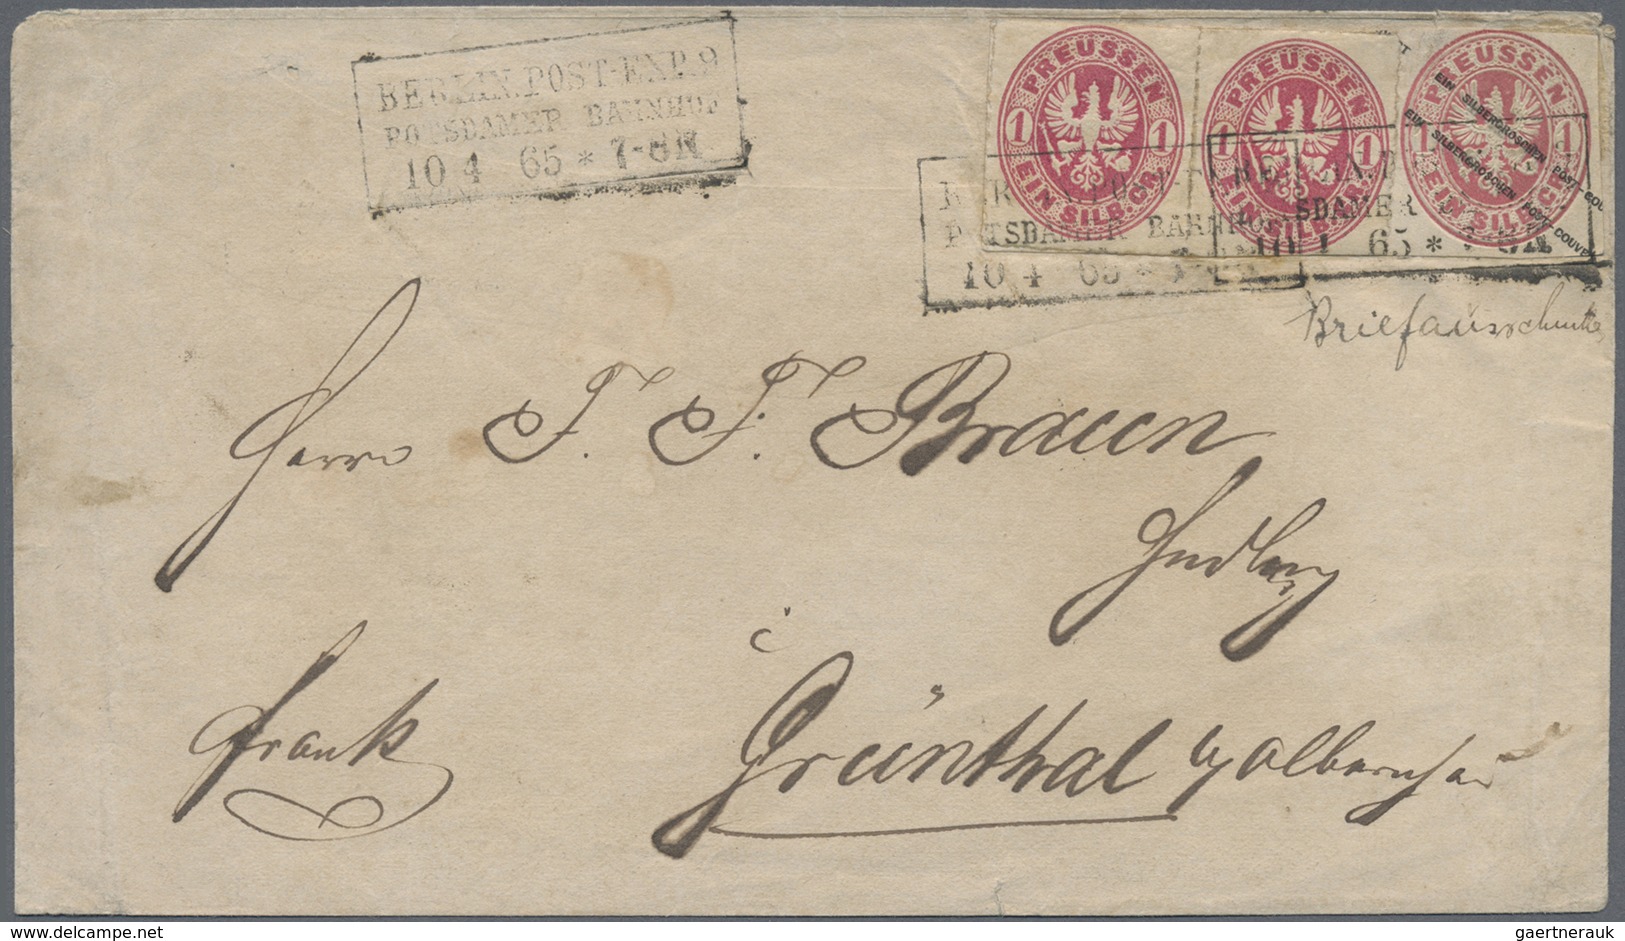 BERLIN.POST-EXP.9
POTSDAMER BAHNHOF
10 4 65 * 7-8N
PREUSSEN
1 1
EIN SILB.GR.
PREUSSEN
1 1
EIN SILB.GR.
PREUSSEN
1 1
EIN SILB.GR.
EIN SILBERGROSCHEN POST-COU
EIN SILBERGROSCHEN POST-COUVE
POTSDAMER BAHNHOF
10 4 65 *
SDAMER
10 4 65 *
Briefausschnitte
Herrn J. F. Braun
Grünthal
frank
delcampe.net
gaertnerauk